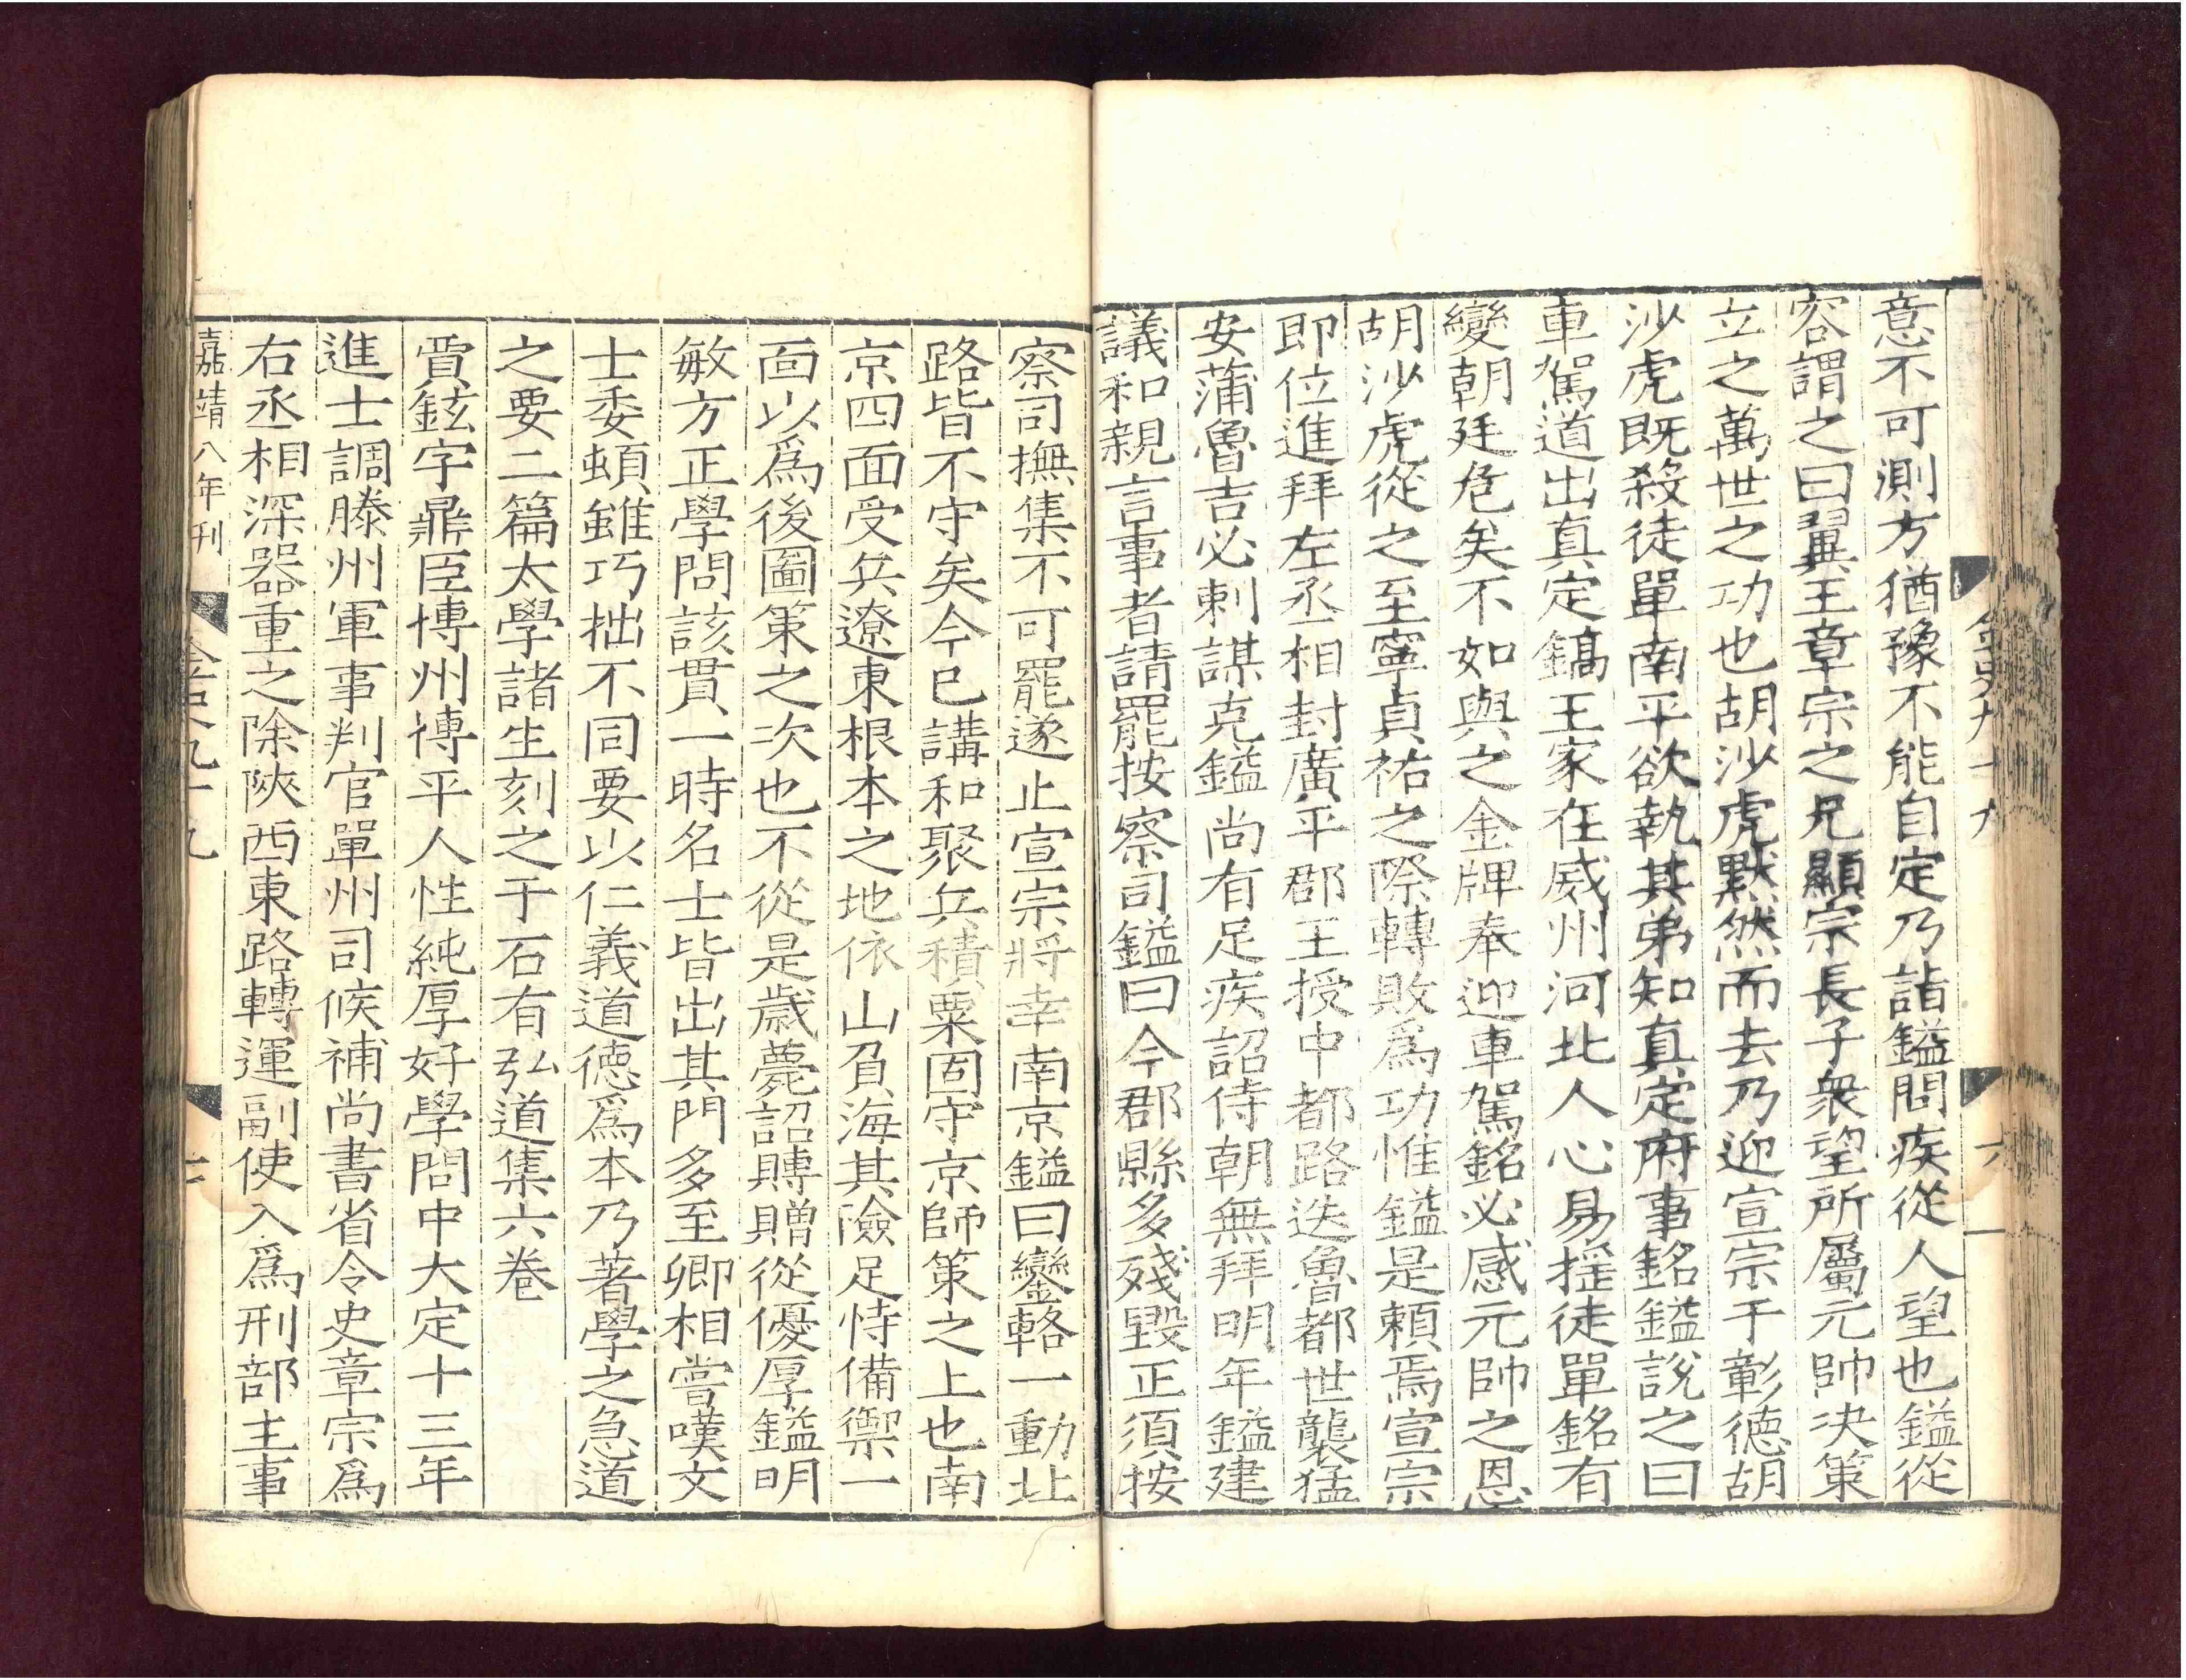 意不可測方猶豫不能自定乃詣鎰問疾從人望也鎰從
容謂之曰翼王章宗之兄顯宗長子衆望所屬元帥决策
立之萬世之功也胡沙虎默然而去乃迎宣宗于彰德胡
沙虎既殺徒單南平欲執其弟知真定府事銘鎰説之曰
車駕道出真定鎬王家在威州河北人心易揺徒單銘有
變朝廷危矣不如與之金牌奉迎車駕銘必感元帥之恩
胡沙虎從之至寧貞祐之際轉敗爲功惟鎰是頼焉宣宗
即位進拜左丞相封廣平郡王授中都路迭魯都世襲猛
安蒲魯吉必剌謀克鎰尚有足疾詔侍朝無拜明年鎰建
議和親言事者請罷按察司鎰曰今郡縣多殘毀正須按
金史九十九
六
察司撫集不可罷遂止宣宗將幸南京鎰曰鑾輅一動北
路皆不守矣今巳講和聚兵積粟固守京師策之上也南
京四面受兵遼東根本之地依山負海其險足恃備禦一
面以爲後圖策之次也不從是歳薨詔賻贈從優厚鎰明
敏方正學問該貫一時名士皆出其門多至卿相嘗嘆文
士委頓雖巧拙不同要以仁義道德爲本乃著學之急道
之要二篇太學諸生刻之于石有弘道集六巻
賈鉉字鼎臣博州博平人性純厚好學問中大定十三年
進士調滕州軍事判官單州司候補尚書省令史章宗爲
右丞相深器重之除陜西東路轉運副使入爲刑部主事
嘉靖八年刊
金史九十九
七